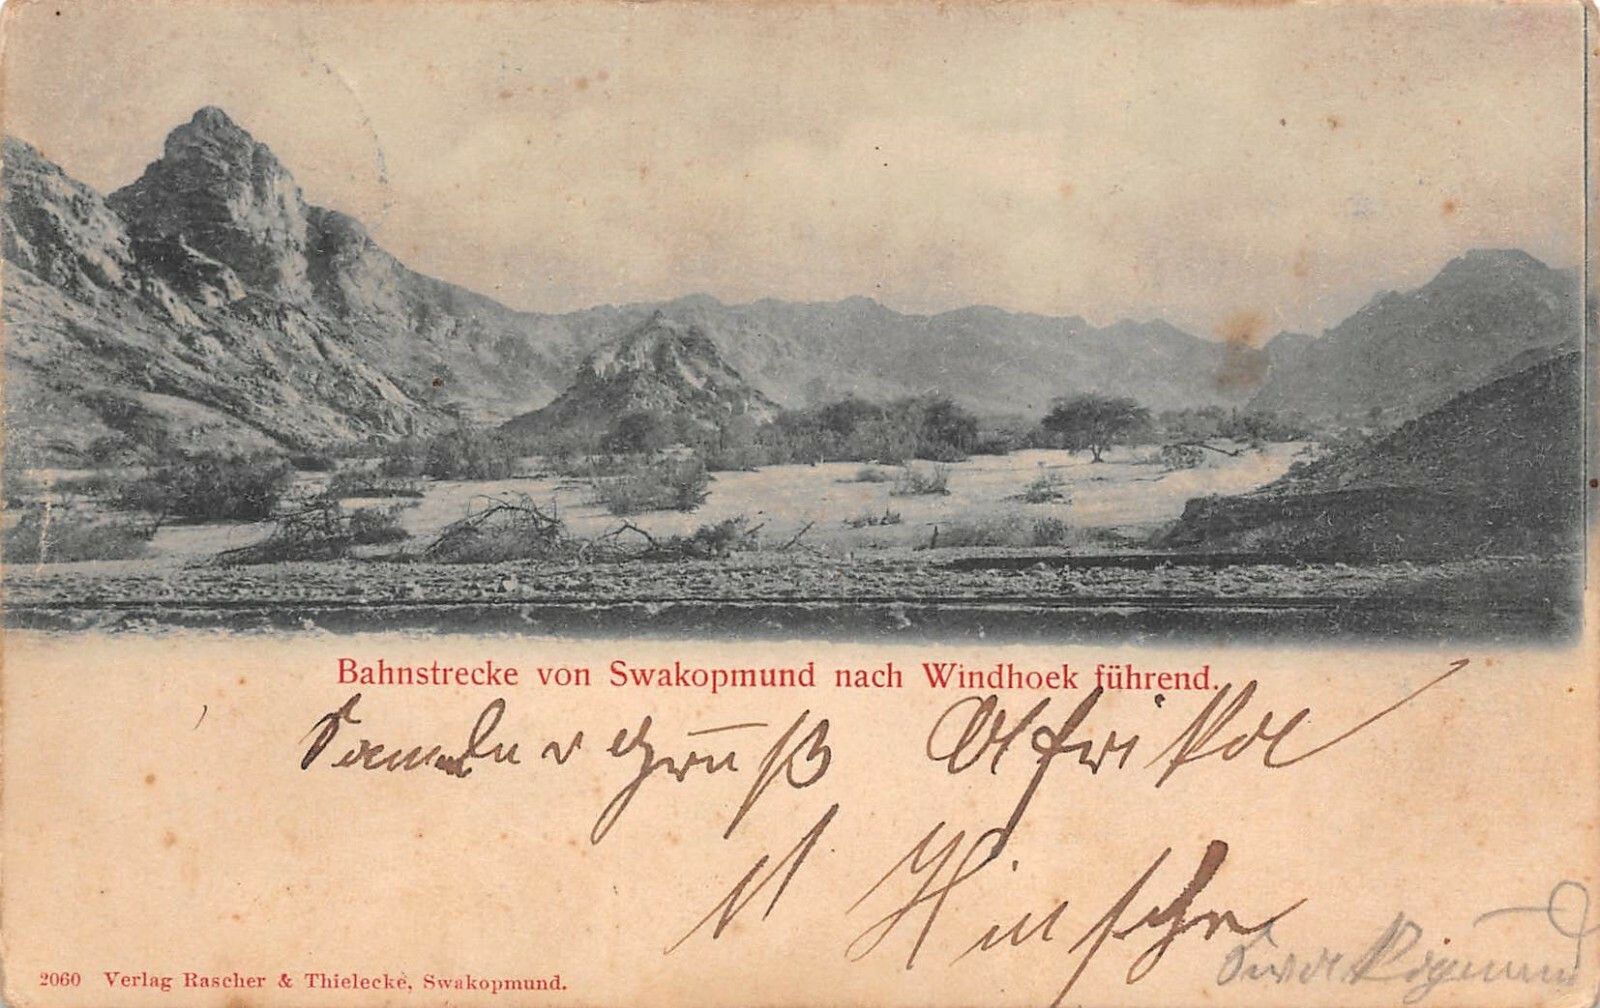 Bahnstrecke von Swakopmund nach Windhoek führend.
Gruß Afrika
2060 Verlag Rascher & Thielecke, Swakopmund.